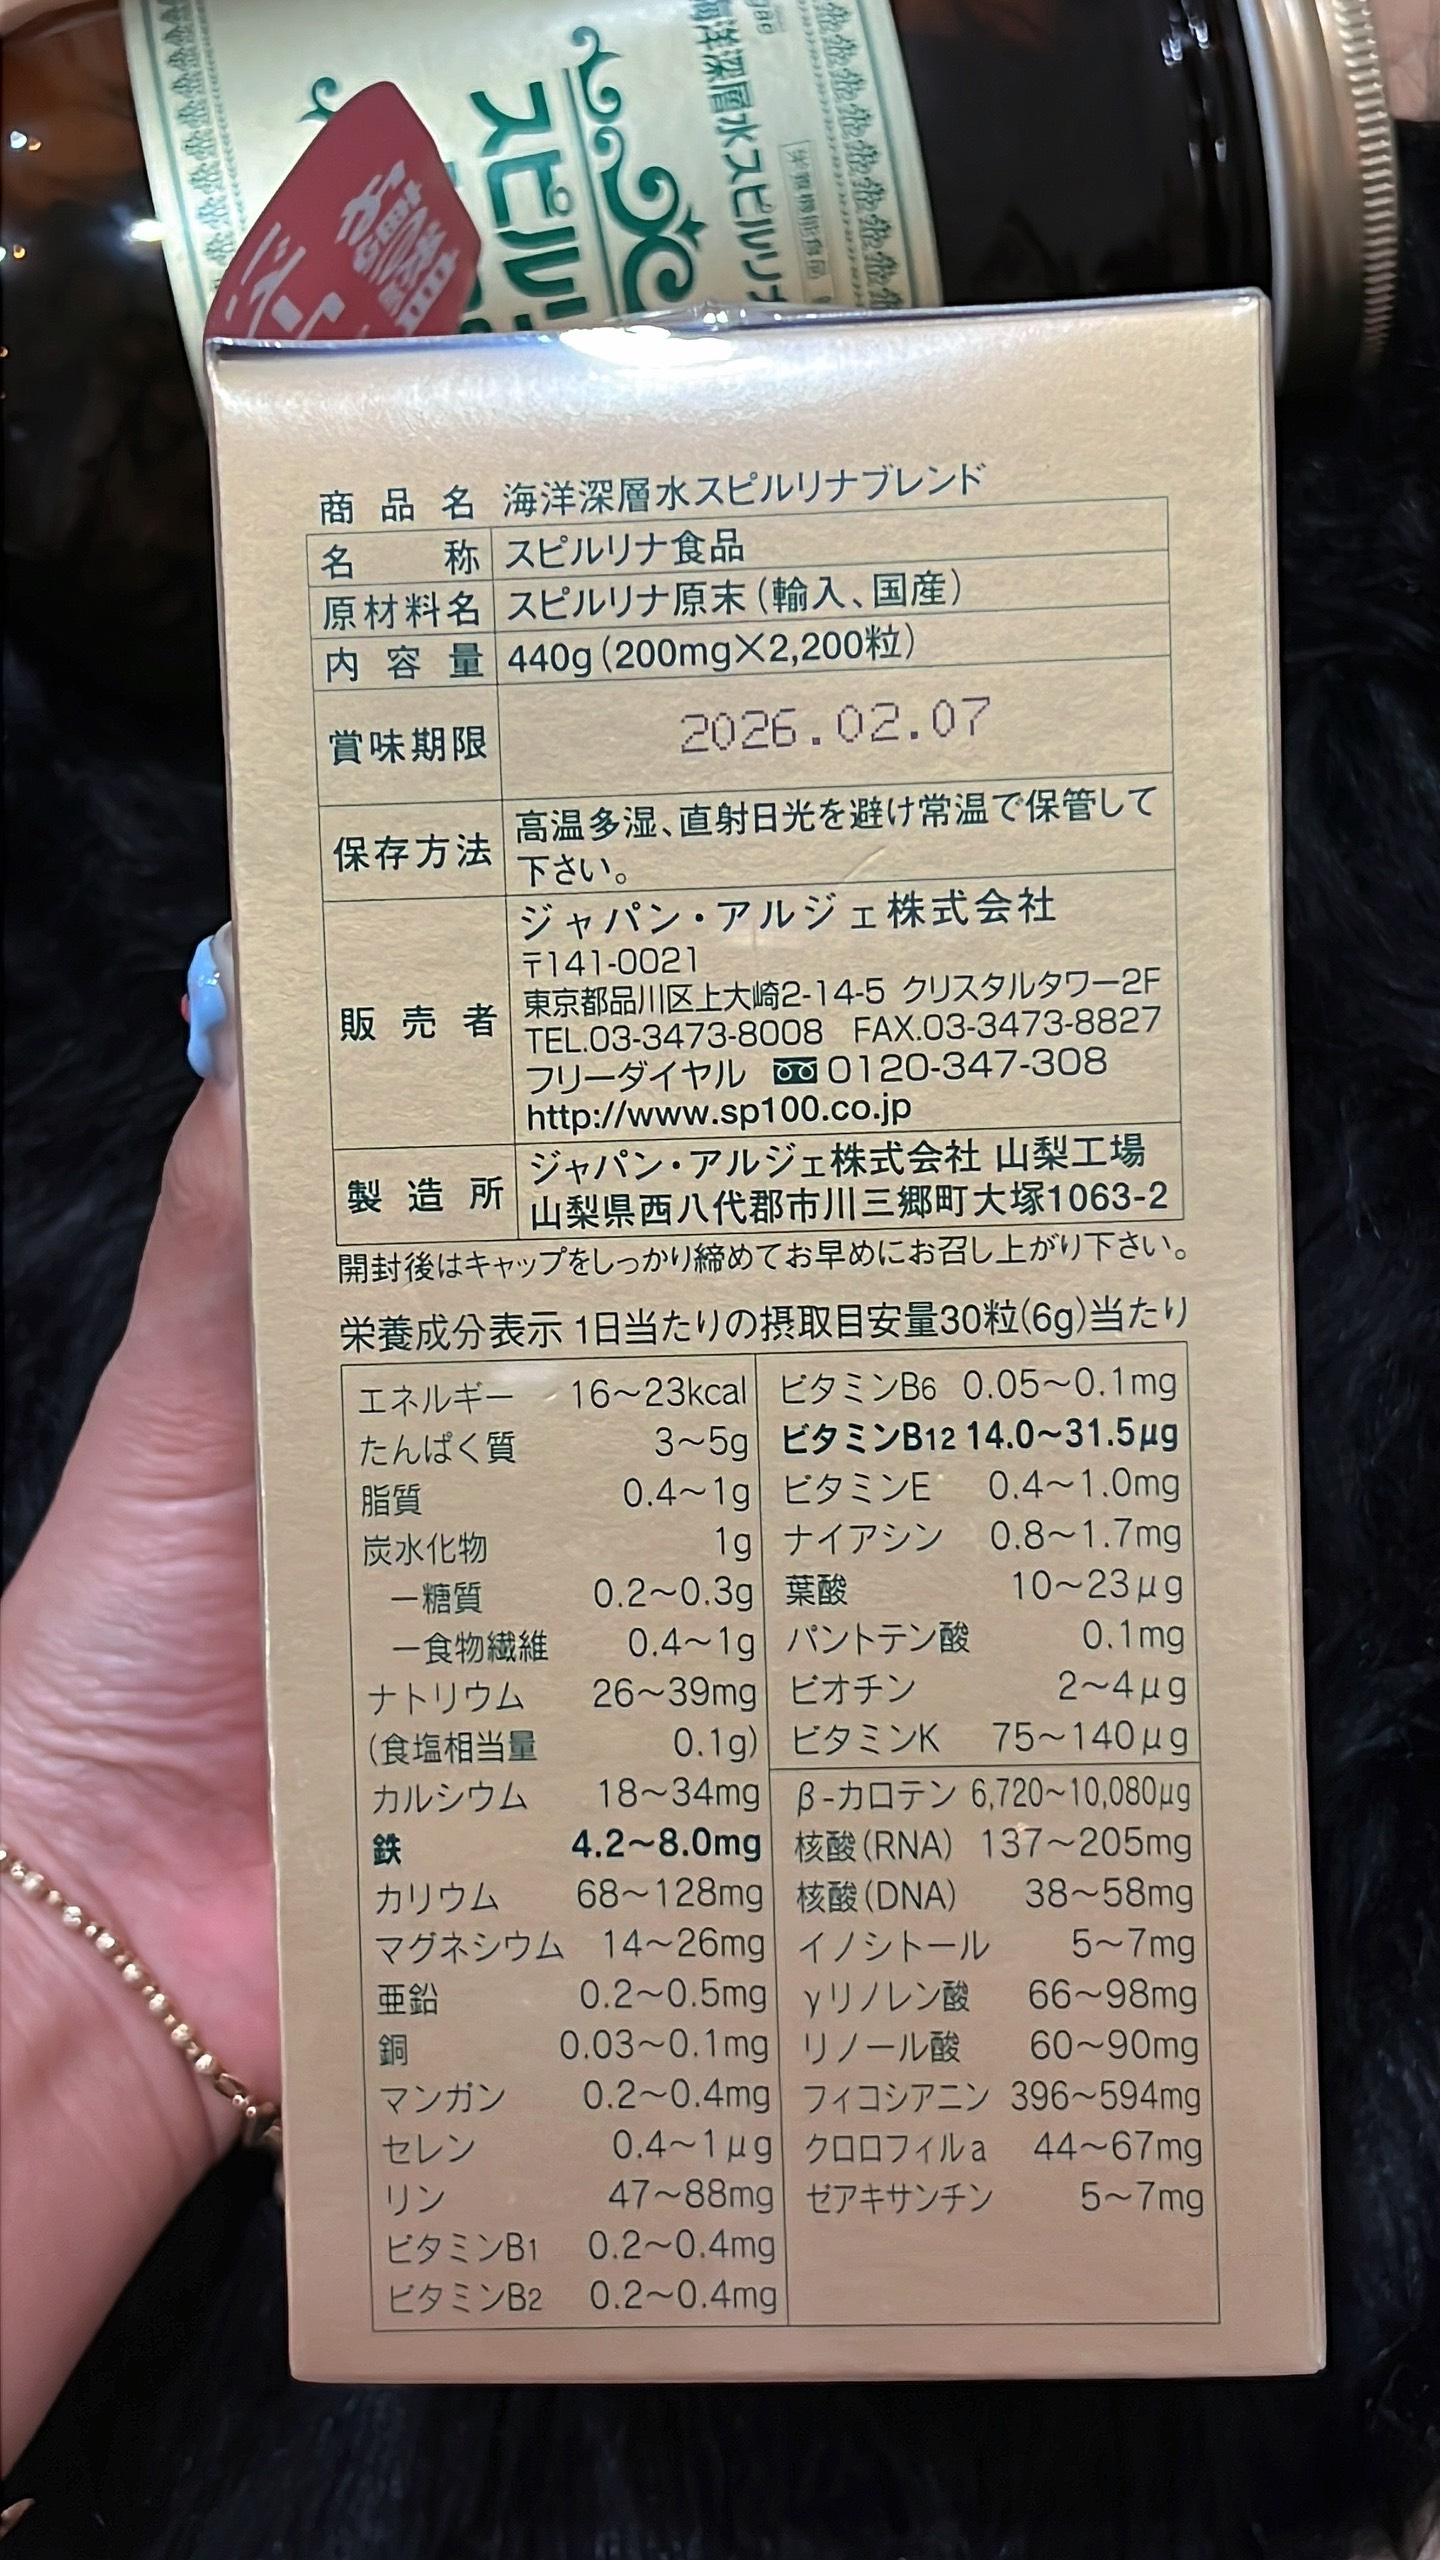 海洋深層水スピルリナ
栄養機能食品
スピルリ
お買い得
商品名 海洋深層水スピルリナブレンド
名称 スピルリナ食品
原材料名 スピルリナ原末(輸入、国産)
内容量 440g(200mg×2,200粒)
賞味期限 2026.02.07
保存方法 高温多湿、直射日光を避け常温で保管して
下さい。
販売者 ジャパン・アルジェ株式会社
〒141-0021
東京都品川区上大崎2-14-5 クリスタルタワー2F
TEL.03-3473-8008 FAX.03-3473-8827
フリーダイヤル 0120-347-308
http://www.sp100.co.jp
製造所 ジャパン・アルジェ株式会社 山梨工場
山梨県西八代郡市川三郷町大塚1063-2
開封後はキャップをしっかり締めてお早めにお召し上がり下さい。
栄養成分表示 1日当たりの摂取目安量30粒(6g)当たり
エネルギー 16~23kcal
たんぱく質 3~5g
脂質 0.4~1g
炭水化物 1g
ー糖質 0.2~0.3g
ー食物繊維 0.4~1g
ナトリウム 26~39mg
(食塩相当量 0.1g)
カルシウム 18~34mg
鉄 4.2~8.0mg
カリウム 68~128mg
マグネシウム 14~26mg
亜鉛 0.2~0.5mg
銅 0.03~0.1mg
マンガン 0.2~0.4mg
セレン 0.4~1μg
リン 47~88mg
ビタミンB1 0.2~0.4mg
ビタミンB2 0.2~0.4mg
ビタミンB6 0.05~0.1mg
ビタミンB12 14.0~31.5μg
ビタミンE 0.4~1.0mg
ナイアシン 0.8~1.7mg
葉酸 10~23μg
パントテン酸 0.1mg
ビオチン 2~4μg
ビタミンK 75~140μg
β-カロテン 6,720~10,080μg
核酸(RNA) 137~205mg
核酸(DNA) 38~58mg
イノシトール 5~7mg
γリノレン酸 66~98mg
リノール酸 60~90mg
フィコシアニン 396~594mg
クロロフィルa 44~67mg
ゼアキサンチン 5~7mg